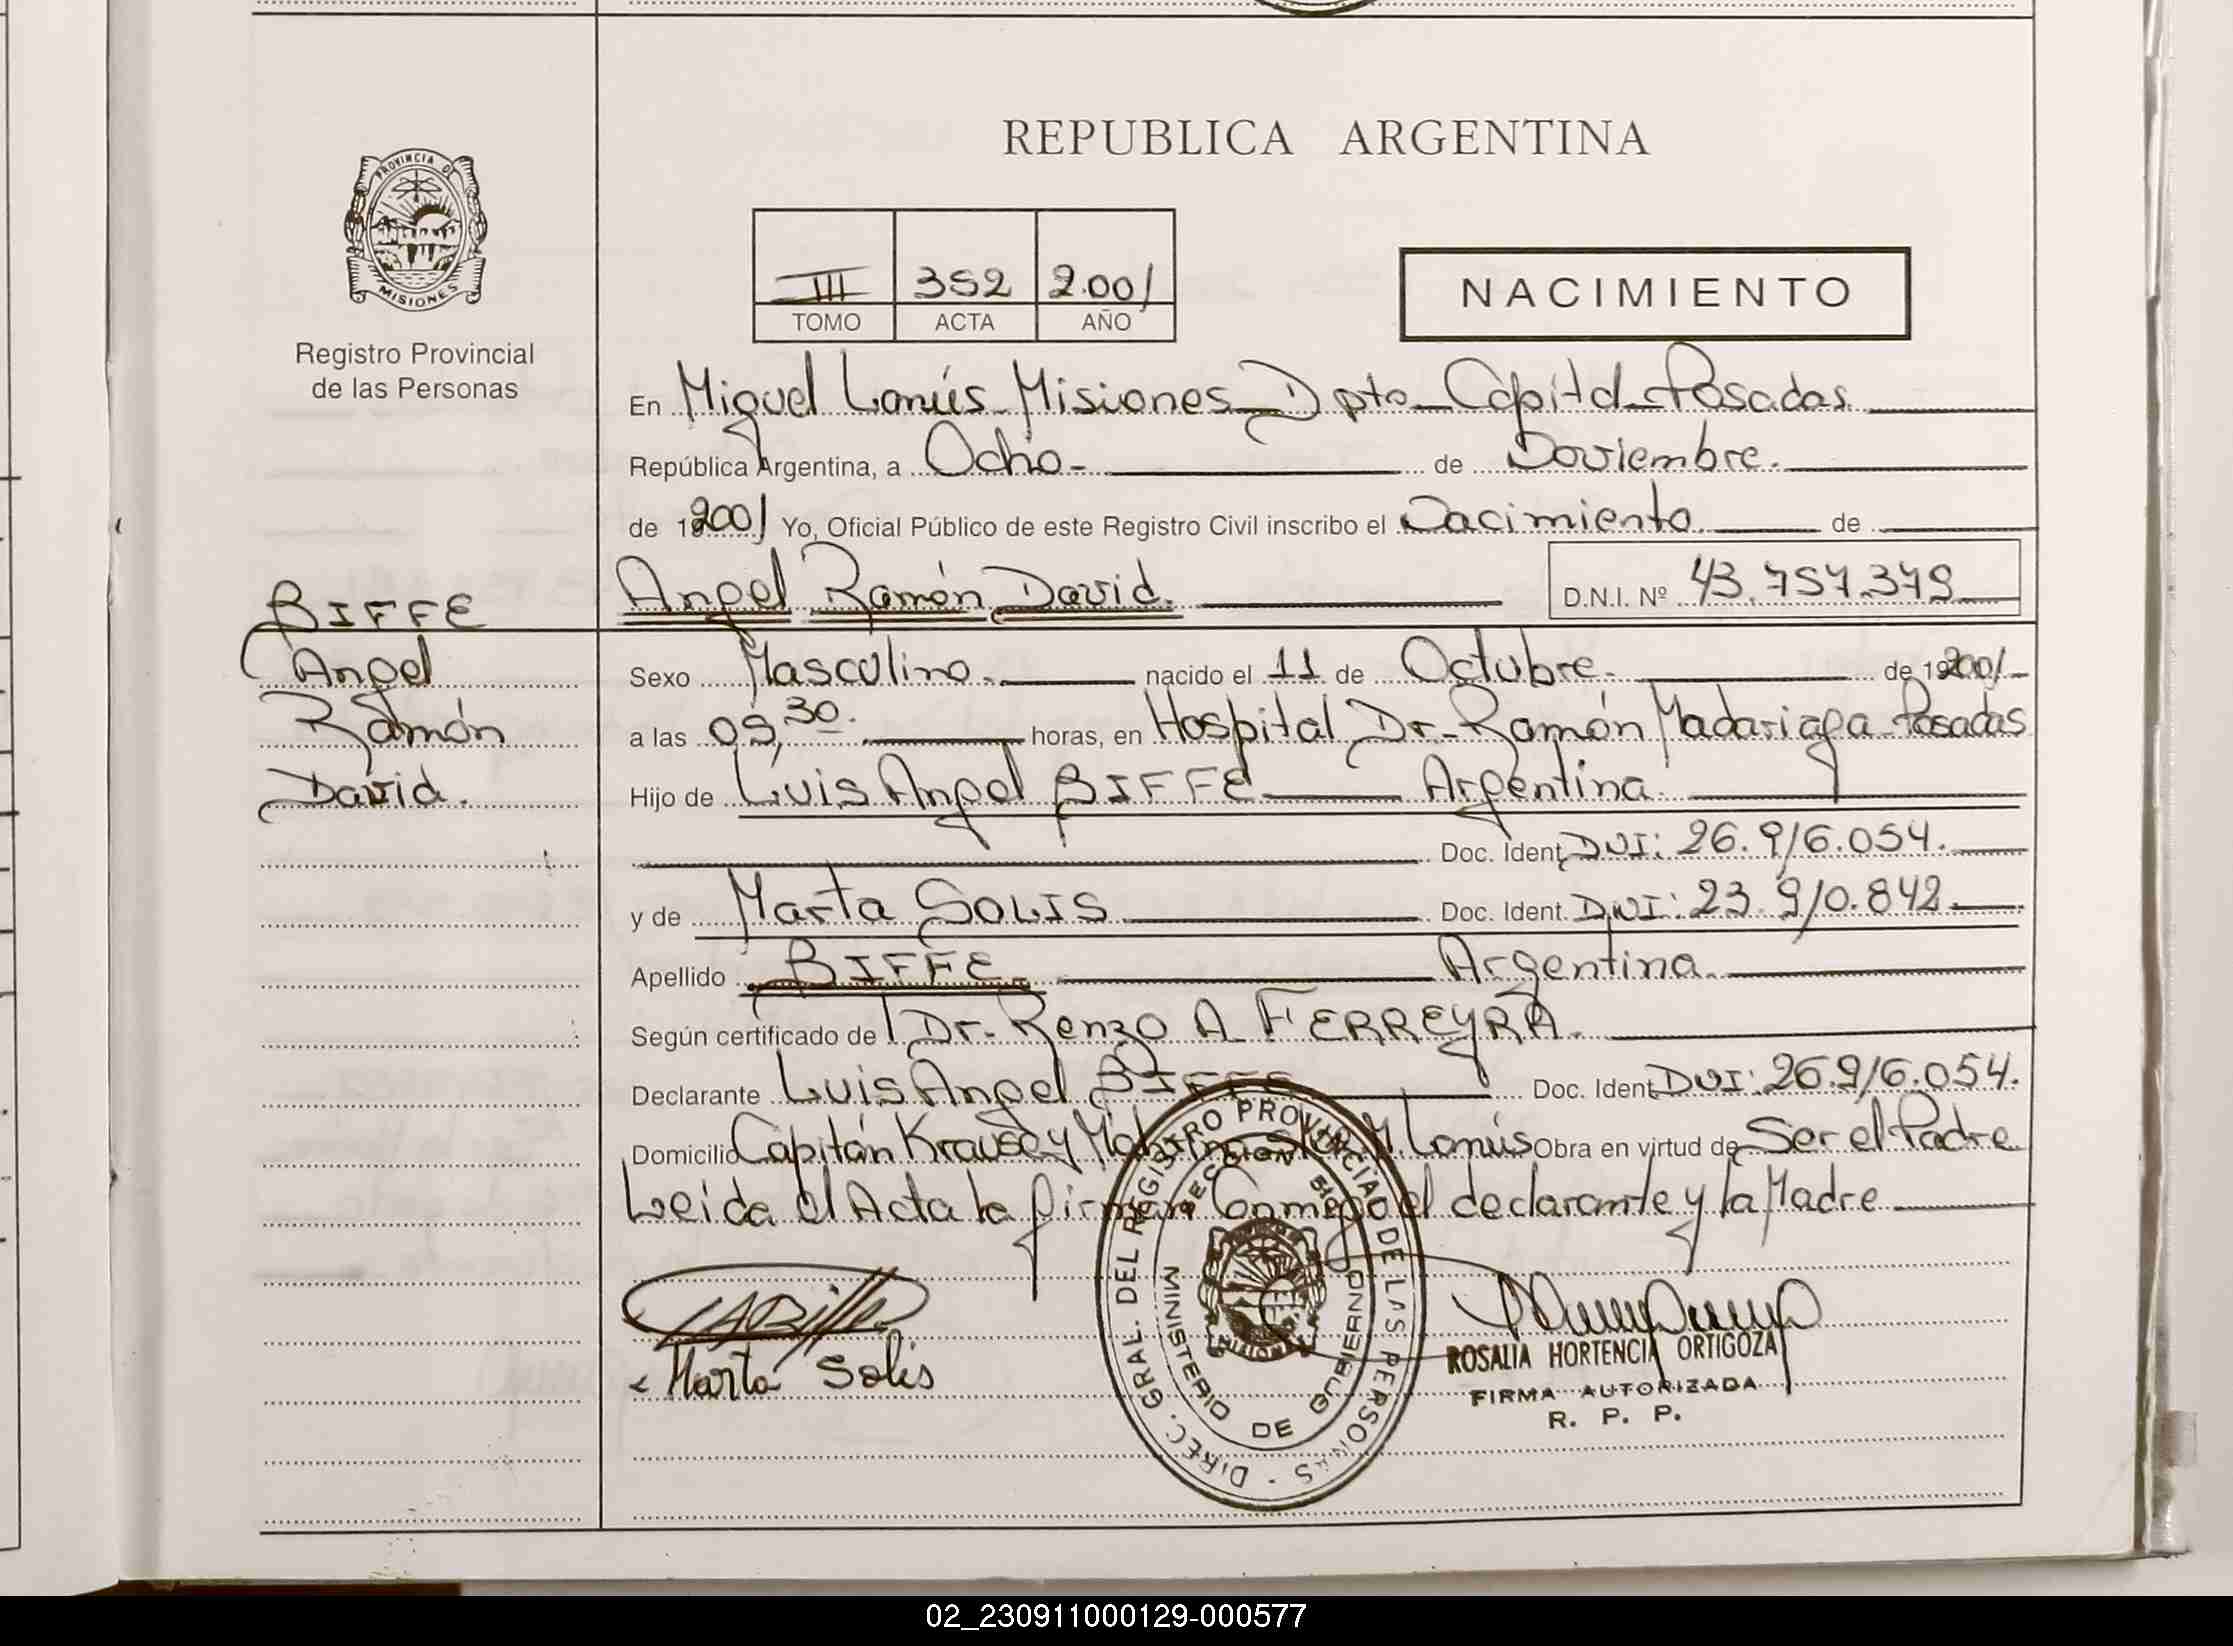 REPUBLICA ARGENTINA
PROVINCIA DE
MISIONES
Registro Provincial
de las Personas
III 352 2.001
TOMO ACTA AÑO
NACIMIENTO
En Miguel Lanús Misiones Dpto Capital Posadas
República Argentina, a Ocho de Noviembre.
de 19 2001 Yo, Oficial Público de este Registro Civil inscribo el Nacimiento de
Angel Ramón David. D.N.I. Nº 43.757.379
BIFFE
Angel
Ramón
David.
Sexo Masculino. nacido el 11 de Octubre. de 19 2001
a las 09,30. horas, en Hospital Dr. Ramón Madariaga Posadas
Hijo de Luis Angel BIFFE Argentina.
Doc. Ident. DNI: 26.916.054.
y de Marta SOLIS Doc. Ident. DNI: 23.910.842.
Apellido BIFFE. Argentina.
Según certificado de Dr. Renzo A FERREYRA.
Declarante Luis Angel BIFFE Doc. Ident. DNI: 26.916.054.
Domicilio Capitán Krause y M. Lanús Obra en virtud de Ser el Padre
Leida el Acta la firman Conmigo el declarante y la Madre
Marta Solis
DIREC. GRAL. DEL REGISTRO PROVINCIAL DE LAS PERSONAS
MINISTERIO DE GOBIERNO
MISIONES
ROSALIA HORTENCIA ORTIGOZA
FIRMA AUTORIZADA
R. P. P.
02_230911000129-000577